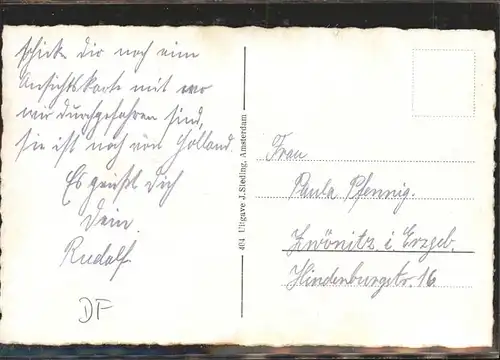 schicke dir noch eine
Ansichtskarte mit wo
wir durchgefahren sind,
sie ist noch von Holland.
Es grüßt Dich
Dein
Rudolf.
DF
404 Uitgave J. Sleding, Amsterdam
Frau
Paula Pfennig.
Zwönitz i. Erzgeb.
Hindenburgstr. 16